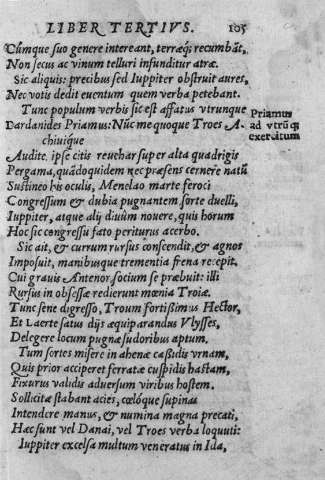 LIBER TERTIVS. 105
Cúmque suo genere intereant, terræq; recumbāt,
Non secus ac vinum telluri infunditur atræ.
Sic aliquis: precibus sed Iuppiter obstruit aures,
Nec votis dedit euentum quem verba petebant.
Tunc populum verbis sic est affatus vtrunque
Dardanides Priamus: Nūc me quoque Troes A-
chiuíque
Priamus
ad vtrūq;
exercitum
Audite, ipse citis reuehar super alta quadrigis
Pergama, quādoquidem nec præsens cernere natū
Sustineo his oculis, Menelao marte feroci
Congressum & dubia pugnantem sorte duelli,
Iuppiter, atque alij diuûm nouere, quis horum
Hoc sic congressu fato periturus acerbo.
Sic ait, & currum rursus conscendit, & agnos
Imposuit, manibusque trementia frena recepit,
Cui grauis Antenor socium se præbuit: illi
Rursus in obsessæ redierunt mœnia Troiæ.
Tunc sene digresso, Troum fortissimus Hector,
Et Laerte satus dijs æquiparandus Vlysses,
Delegere locum pugnæ sudoribus aptum.
Tum sortes misere in ahenæ cassidis vrnam,
Quis prior acciperet ferratæ cuspidis hastam,
Fixurus validis aduersum viribus hostem.
Sollicitæ stabant acies, cœlóque supinas
Intendere manus, & numina magna precati,
Hæc sunt vel Danai, vel Troes verba loquuti:
Iuppiter excelsa multum veneratus in Ida,